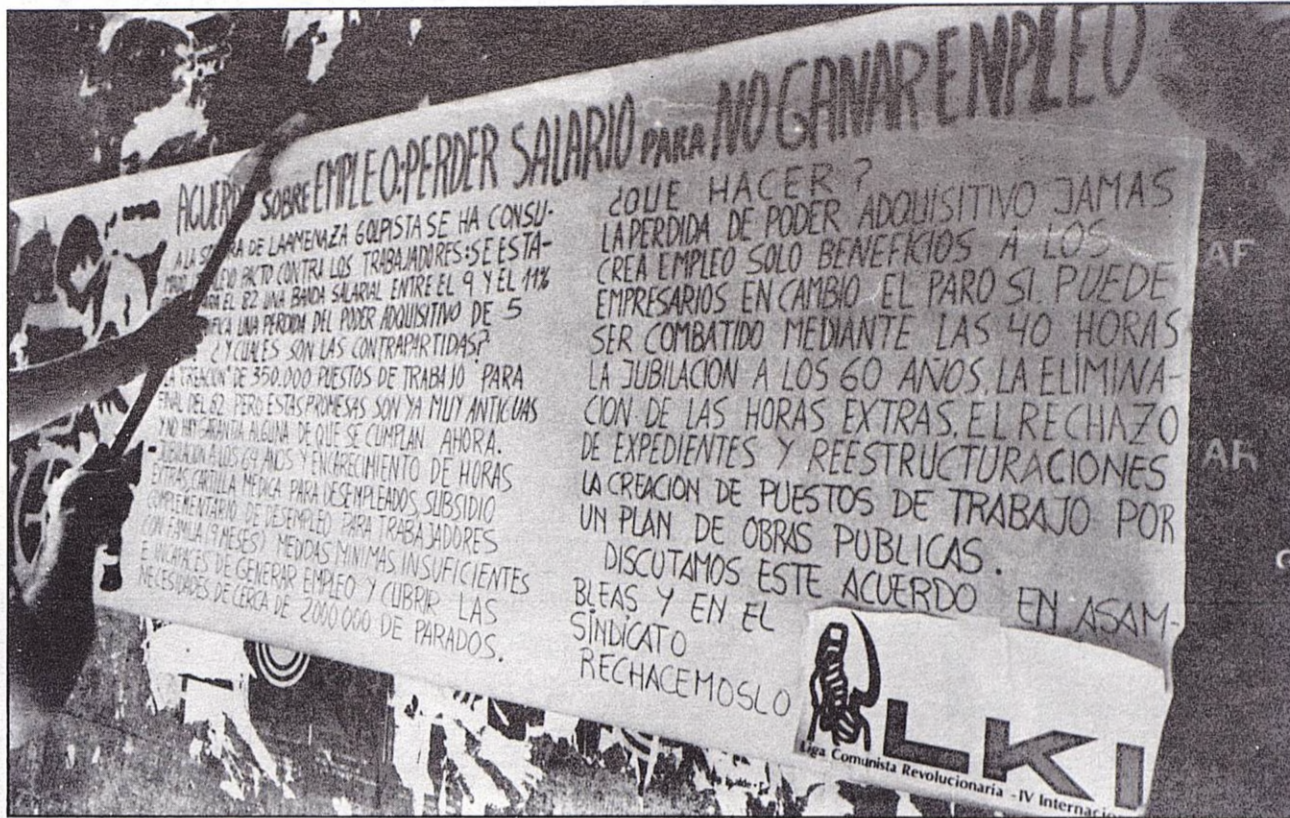 ACUERDO SOBRE EMPLEO: PERDER SALARIO PARA NO GANAR ENPLEO
A LA DE LA AMENAZA GOLPISTA SE HA CONSU-
PACTO CONTRA LOS TRABAJADORES: SE ESTA-
EL 82 UNA BANDA SALARIAL ENTRE EL 9 Y EL 11%
UNA PERDIDA DEL PODER ADQUISITIVO DE 5
¿Y CUALES SON LAS CONTRAPARTIDAS?
LA "CREACION" DE 350.000 PUESTOS DE TRABAJO PARA
FINAL DEL 82. PERO ESTAS PROMESAS SON YA MUY ANTIGUAS
Y NO HAY GARANTIA ALGUNA DE QUE SE CUMPLAN AHORA.
JUBILACION A LOS 64 AÑOS Y ENCARECIMIENTO DE HORAS
EXTRAS, CARTILLA MEDICA PARA DESEMPLEADOS, SUBSIDIO
COMPLEMENTARIO DE DESEMPLEO PARA TRABAJADORES
CON FAMILIA (9 MESES) MEDIDAS MINIMAS INSUFICIENTES
E INCAPACES DE GENERAR EMPLEO Y CUBRIR LAS
NECESIDADES DE CERCA DE 2000000 DE PARADOS.
¿QUE HACER?
LA PERDIDA DE PODER ADQUISITIVO JAMAS
CREA EMPLEO SOLO BENEFICIOS A LOS
EMPRESARIOS EN CAMBIO EL PARO SI PUEDE
SER COMBATIDO MEDIANTE LAS 40 HORAS
LA JUBILACION A LOS 60 AÑOS, LA ELIMINA-
CION DE LAS HORAS EXTRAS, EL RECHAZO
DE EXPEDIENTES Y REESTRUCTURACIONES
LA CREACION DE PUESTOS DE TRABAJO POR
UN PLAN DE OBRAS PUBLICAS.
DISCUTAMOS ESTE ACUERDO EN ASAM-
BLEAS Y EN EL
SINDICATO
RECHACEMOSLO
LKI
Liga Comunista Revolucionaria - IV Internacio
AF
AR